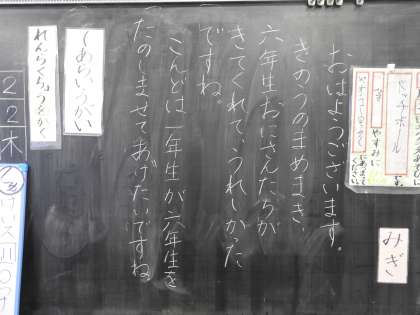 おはようございます。
きのうのまめまき、
六年生おにさんたちが
きてくれて、うれしかった
ですね。
こんどは一年生が六年生を
たのしませてあげたいですね
てあらいうがい
れんらくちょうをかく
22木
みぎ